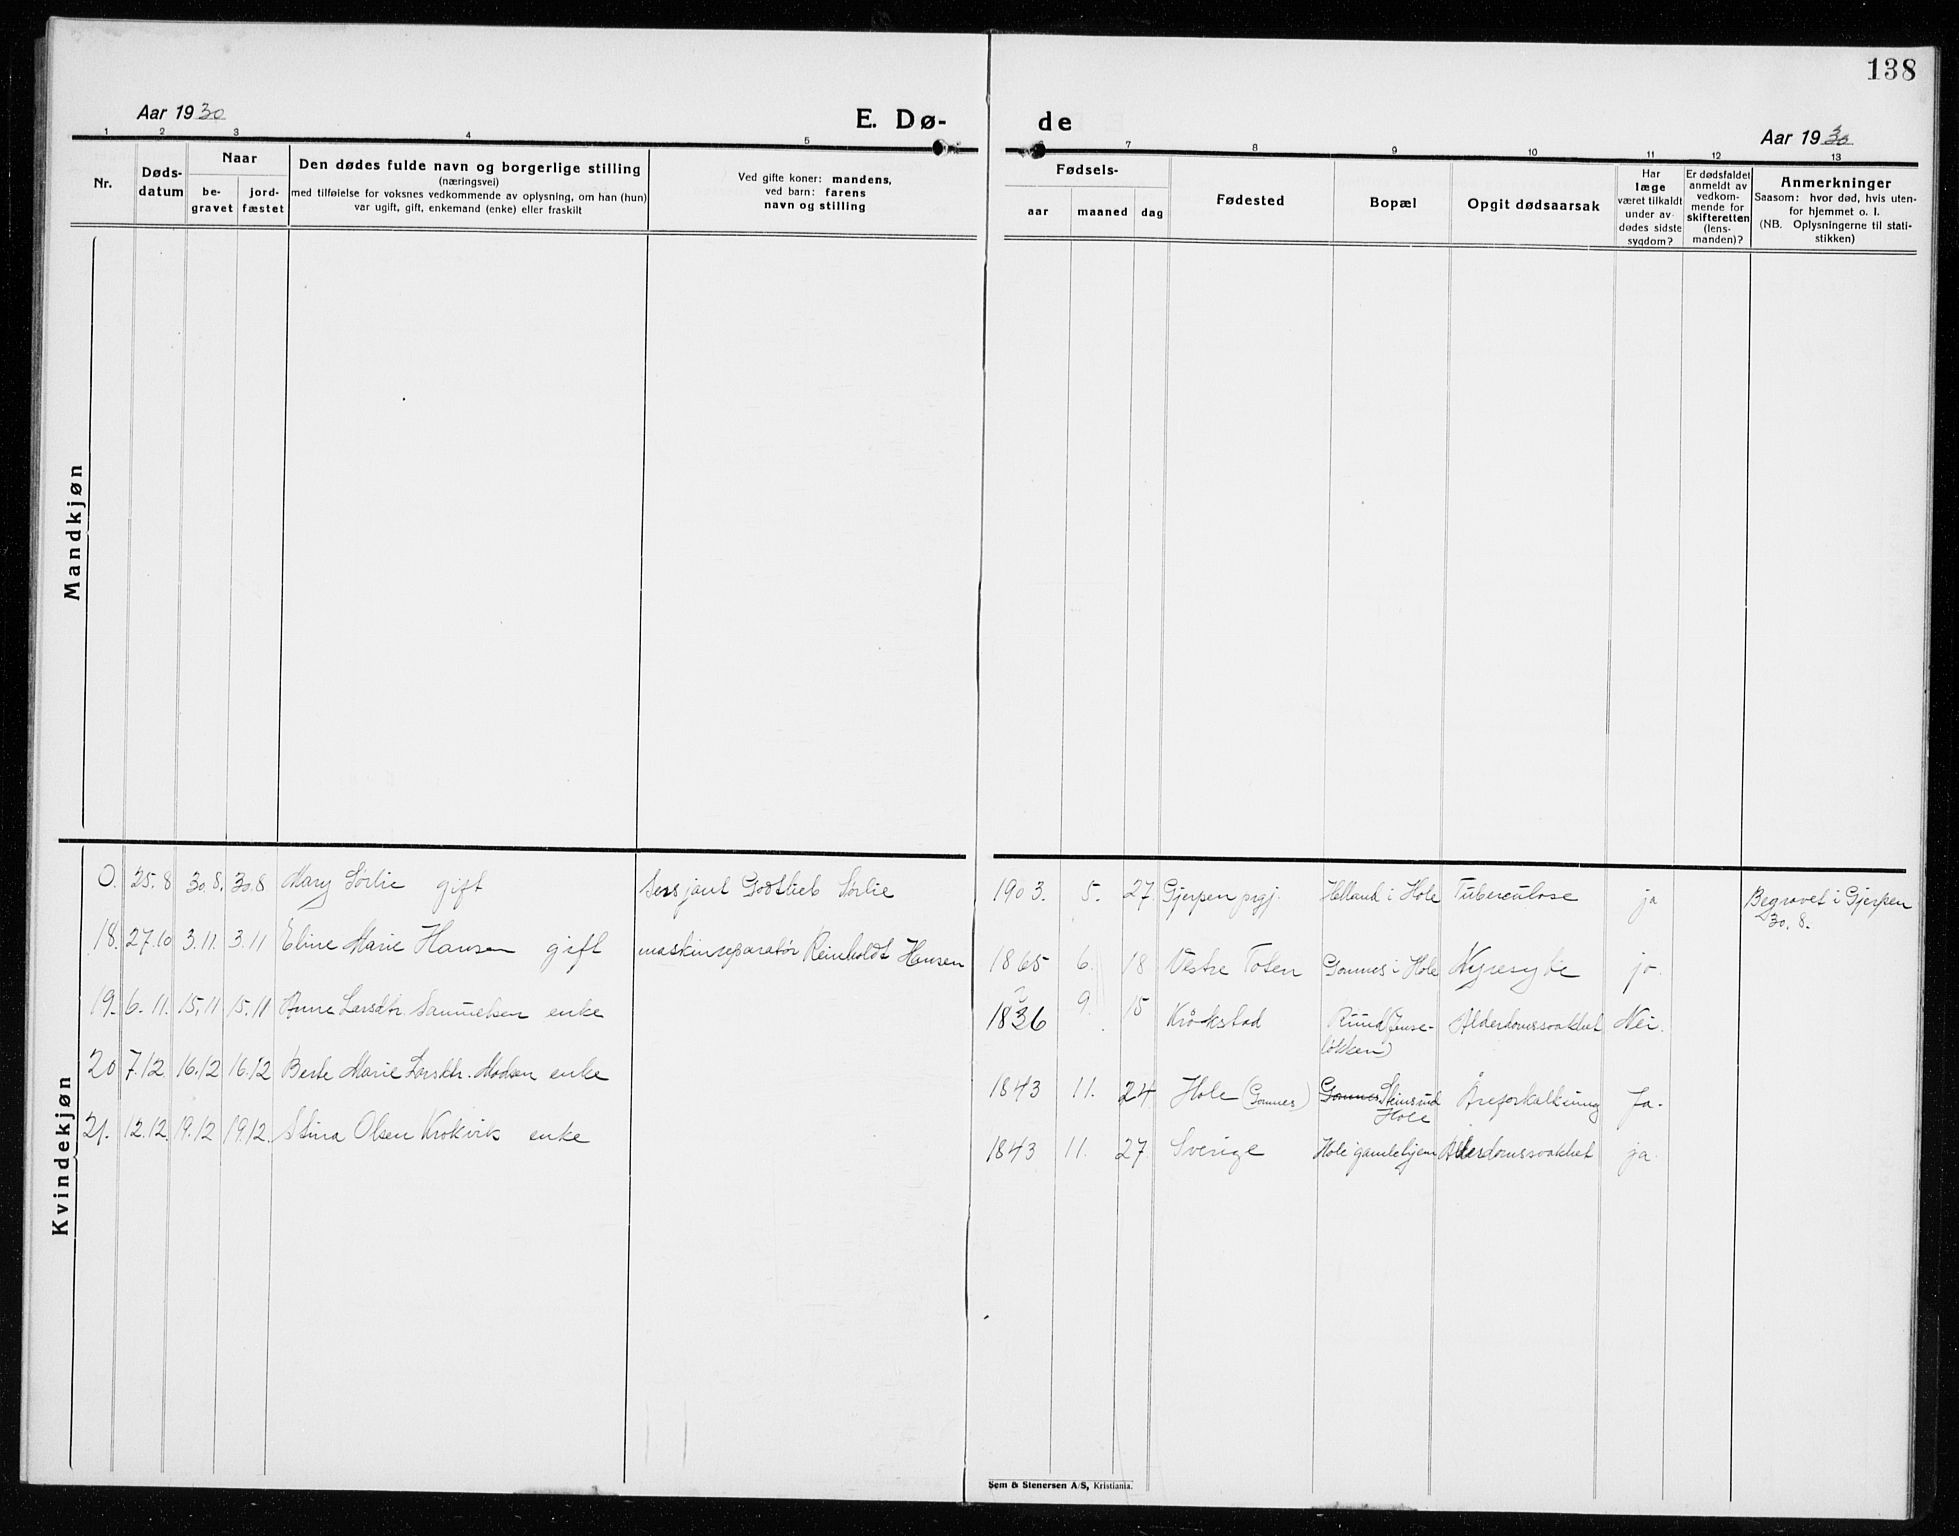 138
Aar 1930
E. Dø-
de
Aar 1930
1 2 3 4 5 7 8 9 10 11 12 13
Nr.
Døds-
datum
Naar
be-
gravet
jord-
fæstet
Den dødes fulde navn og borgerlige stilling
(næringsvei)
med tilføielse for voksnes vedkommende av oplysning, om han (hun)
var ugift, gift, enkemand (enke) eller fraskilt
Ved gifte koner: mandens,
ved barn: farens
navn og stilling
Fødsels-
aar
maaned
dag
Fødested
Bopæl
Opgit dødsaarsak
Har
læge
været tilkaldt
under av-
dødes sidste
sygdom?
Er dødsfaldet
anmeldt av
vedkom-
mende for
skifteretten
(lens-
manden)?
Anmerkninger
Saasom: hvor død, hvis uten-
for hjemmet o. l.
(NB. Oplysningerne til stati-
stikken)
Mandkjøn
Kvindekjøn
0. 25.8 30.8. 30.8 Mary Sørlie gift Sersjant Gottlieb Sørlie 1903. 5. 27. Gjerpen prgj. Helland i Hole Tuberculose ja Begravet i Gjerpen
30.8.
18. 27.10 3.11. 3.11 Eline Marie Hansen gift maskinreparatør Reinholdt Hansen 1865 6. 18 Vestre Toten Gomnes i Hole Nyresyke ja.
19. 6.11. 15.11 15.11 Anne Larsdtr. Samuelsen enke 1836 9. 15 Kråkstad Rud (Jense-
løkken) Alderdomssvakhet Nei.
20 7.12 16.12 16.12 Berte Marie Larsdtr. Madsen enke 1843 11. 24 Hole (Gomnes) Gomnes Steinsrud
Hole Åreforkalkning Ja.
21. 12.12 19.12 19.12. Stina Olsen Krokvik enke 1843 11. 27. Sverige Hole gamlehjem Alderdomssvakhet ja.
Sem & Stenersen A/S, Kristiania.